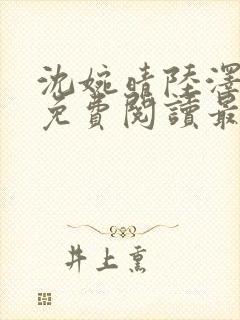 沈婉晴陸澤
免費閱讀最
井上熏